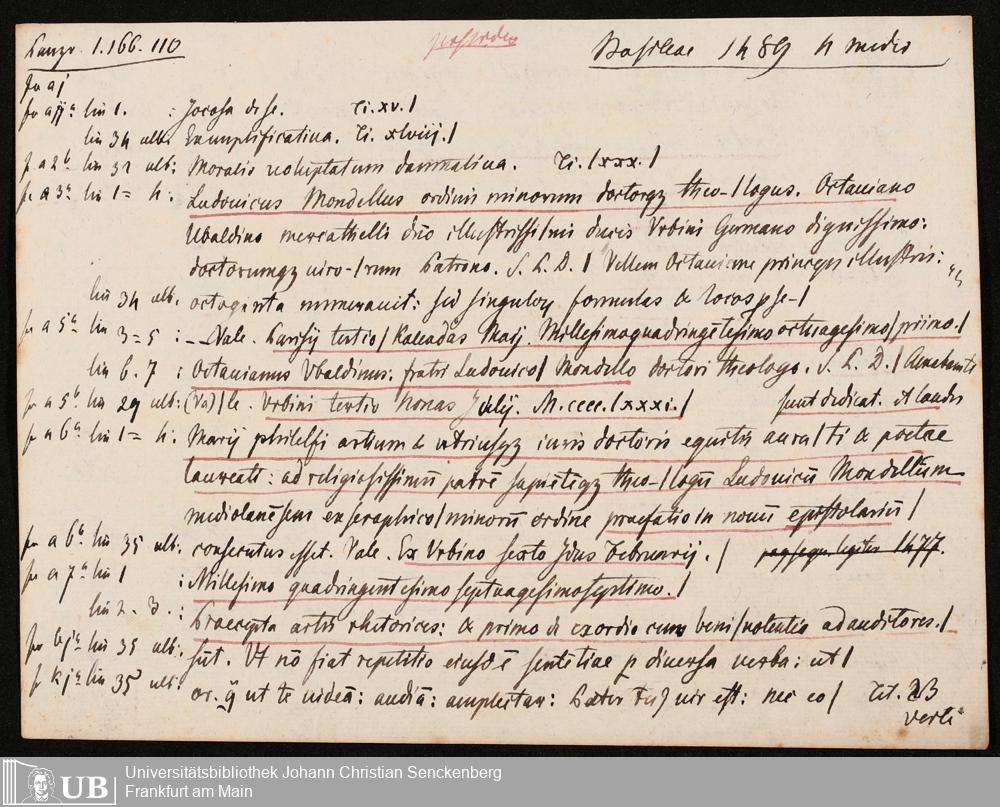 Panzr. 1.166.110
Basileae 1489 4 medio
fo a j
fo a jjª lin 1. : Jocosa de se. Ti. xv. /
lin 34 ult: Exemplificatiua. Ti. xlviij. /
f a 2ᵇ lin 31 ult: Moralis uoluptatum damnatiua. Ti. lxxx. /
fo a 3ª lin 1 = 4: Ludouicus Mondellus ordinis minorum doctorqz theo-/logus. Octauiano
Ubaldino mercathelli dno illustrissi/mi ducis Vrbini Germano dignissimo:
doctorumqz uiro-/rum Patrono. S. P. D. / Vellem Octauiane princeps illustris:
lin 34 ult. octoginta numerauit: sed singulorz formulas & locos pse-/
fo a 5ª lin 3 = 5 : -- Vale. Parisij tertio/ Kalendas Maij. Millesimoquadringetesimo octuagesimo/ primo. /
lin 6. 7 : Octauianus Vbaldinus: fratri Ludouico/ Mondello doctori theologo. S. P. D. /
fo a 5ᵇ lin 29 ult: (Va)/le. Vrbini tertio Nonas Julij. M.cccc.lxxxi. /
fo a 6ª lin 1 = 4: Marij philelfi artium & utriusqz iuris doctoris equitis aura/ti & poetae
laureati: ad religiosissimū patrē sapietēqz theo-/logū Ludouicū Mondellum
mediolanēsem ex seraphico/ minorū ordine praefatio in nouū epistolariū /
fo a 6ᵇ lin 35 ult: consecutus esset. Vale. Ex Vrbino sexto Jdus Februarij. / 1477.
fo a 7ª lin 1 : Millesimo quadringentesimo septuagesimoseptimo. /
lin 2. 3. : Praecepta artis rhetorices: & primo de exordio cum beni/uolentia ad auditores. /
lin 35 ult: sūt. Vt nō fiat repetitio eiusdē sentētiae p diuersa uerba: ut /
lin 35 ult: ut te uideā: audiā: amplectar: uir est: nec eo / Tit. 23
verte
Universitätsbibliothek Johann Christian Senckenberg
Frankfurt am Main
UB